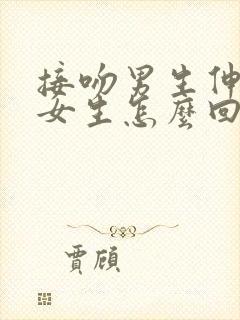 接吻男生伸
女生怎麼回
賈頎